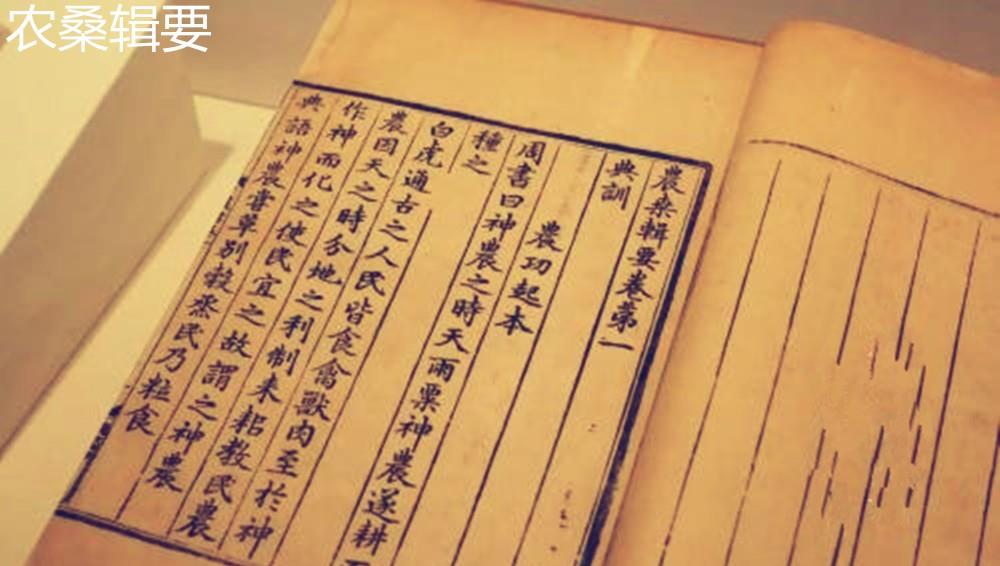 农桑辑要
農桒輯要卷第一
典訓
農功起本
周書曰神農之時天雨粟神農遂耕而
種之
白虎通古之人民皆食禽獸肉至於神
農因天之時分地之利制耒耜教民農
作神而化之使民宜之故謂之神農
典語神農嘗草别榖烝民乃粒食